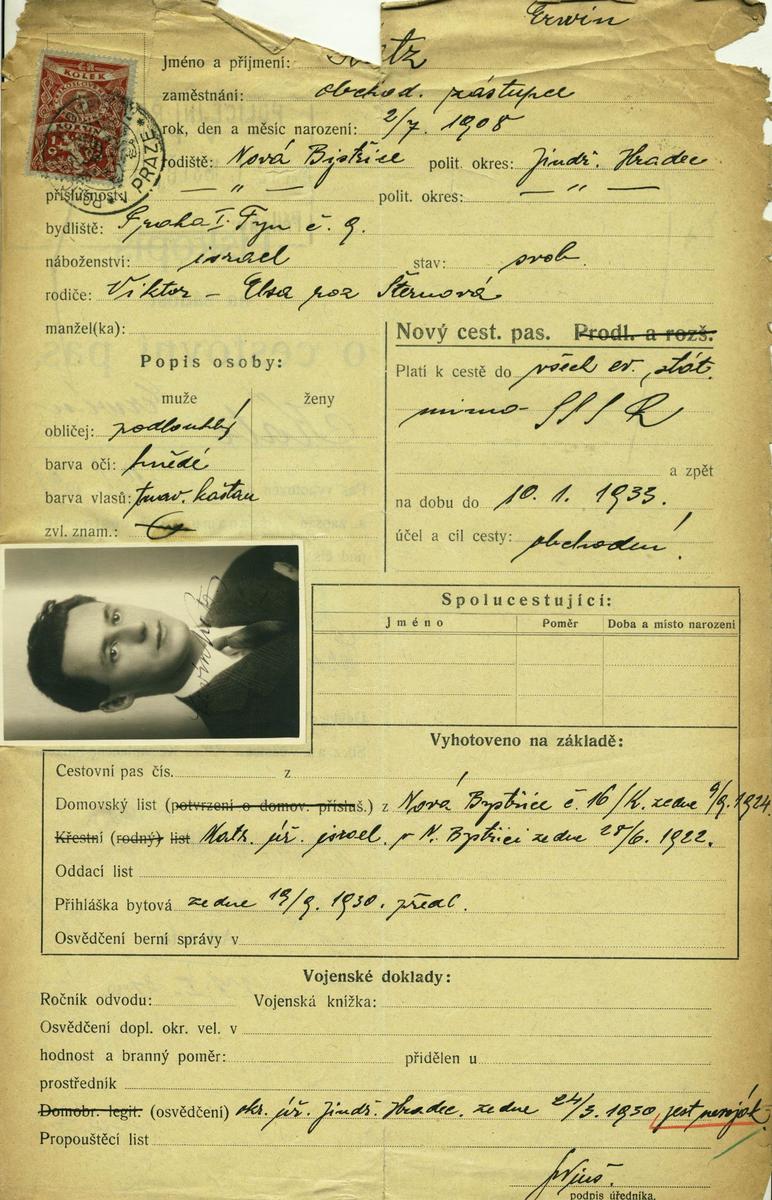 Erwin
Jméno a příjmení: Katz
zaměstnání: obchod. zástupce
rok, den a měsíc narození: 2/7. 1908
rodiště: Nová Bystřice polit. okres: Jindř. Hradec
příslušnost: — " — polit. okres: — " —
bydliště: Praha I. Týn č. 9.
náboženství: israel stav: svob.
rodiče: Viktor – Elsa roz Šternová
manžel(ka):
Nový cest. pas. Prodl. a rozš.
Popis osoby:
Platí k cestě do všech ev. stát.
muže ženy
mimo SSSR
obličej: podlouhlý
barva očí: hnědé
a zpět
barva vlasů: tmav. kaštan
na dobu do 10. 1. 1933.
zvl. znam.:
účel a cíl cesty: obchodní
KOLEK
V PRAZE
Spolucestující:
Jméno Poměr Doba a místo narození
Vyhotoveno na základě:
Cestovní pas čís. z
Domovský list (potvrzení o domov. přísluš.) z Nová Bystřice č. 16/K. ze dne 9/9. 1924.
Křestní (rodný) list Matr. úř. israel. v N. Bystřici ze dne 28/6. 1922.
Oddací list
Přihláška bytová ze dne 19/9. 1930. předl.
Osvědčení berní správy v
Vojenské doklady:
Ročník odvodu: Vojenská knížka:
Osvědčení dopl. okr. vel. v
hodnost a branný poměr: přidělen u
prostředník
Domobr. legit. (osvědčení) okr. úř. Jindř. Hradec. ze dne 24/3. 1930, jest nevoják.
Propouštěcí list
podpis úředníka.